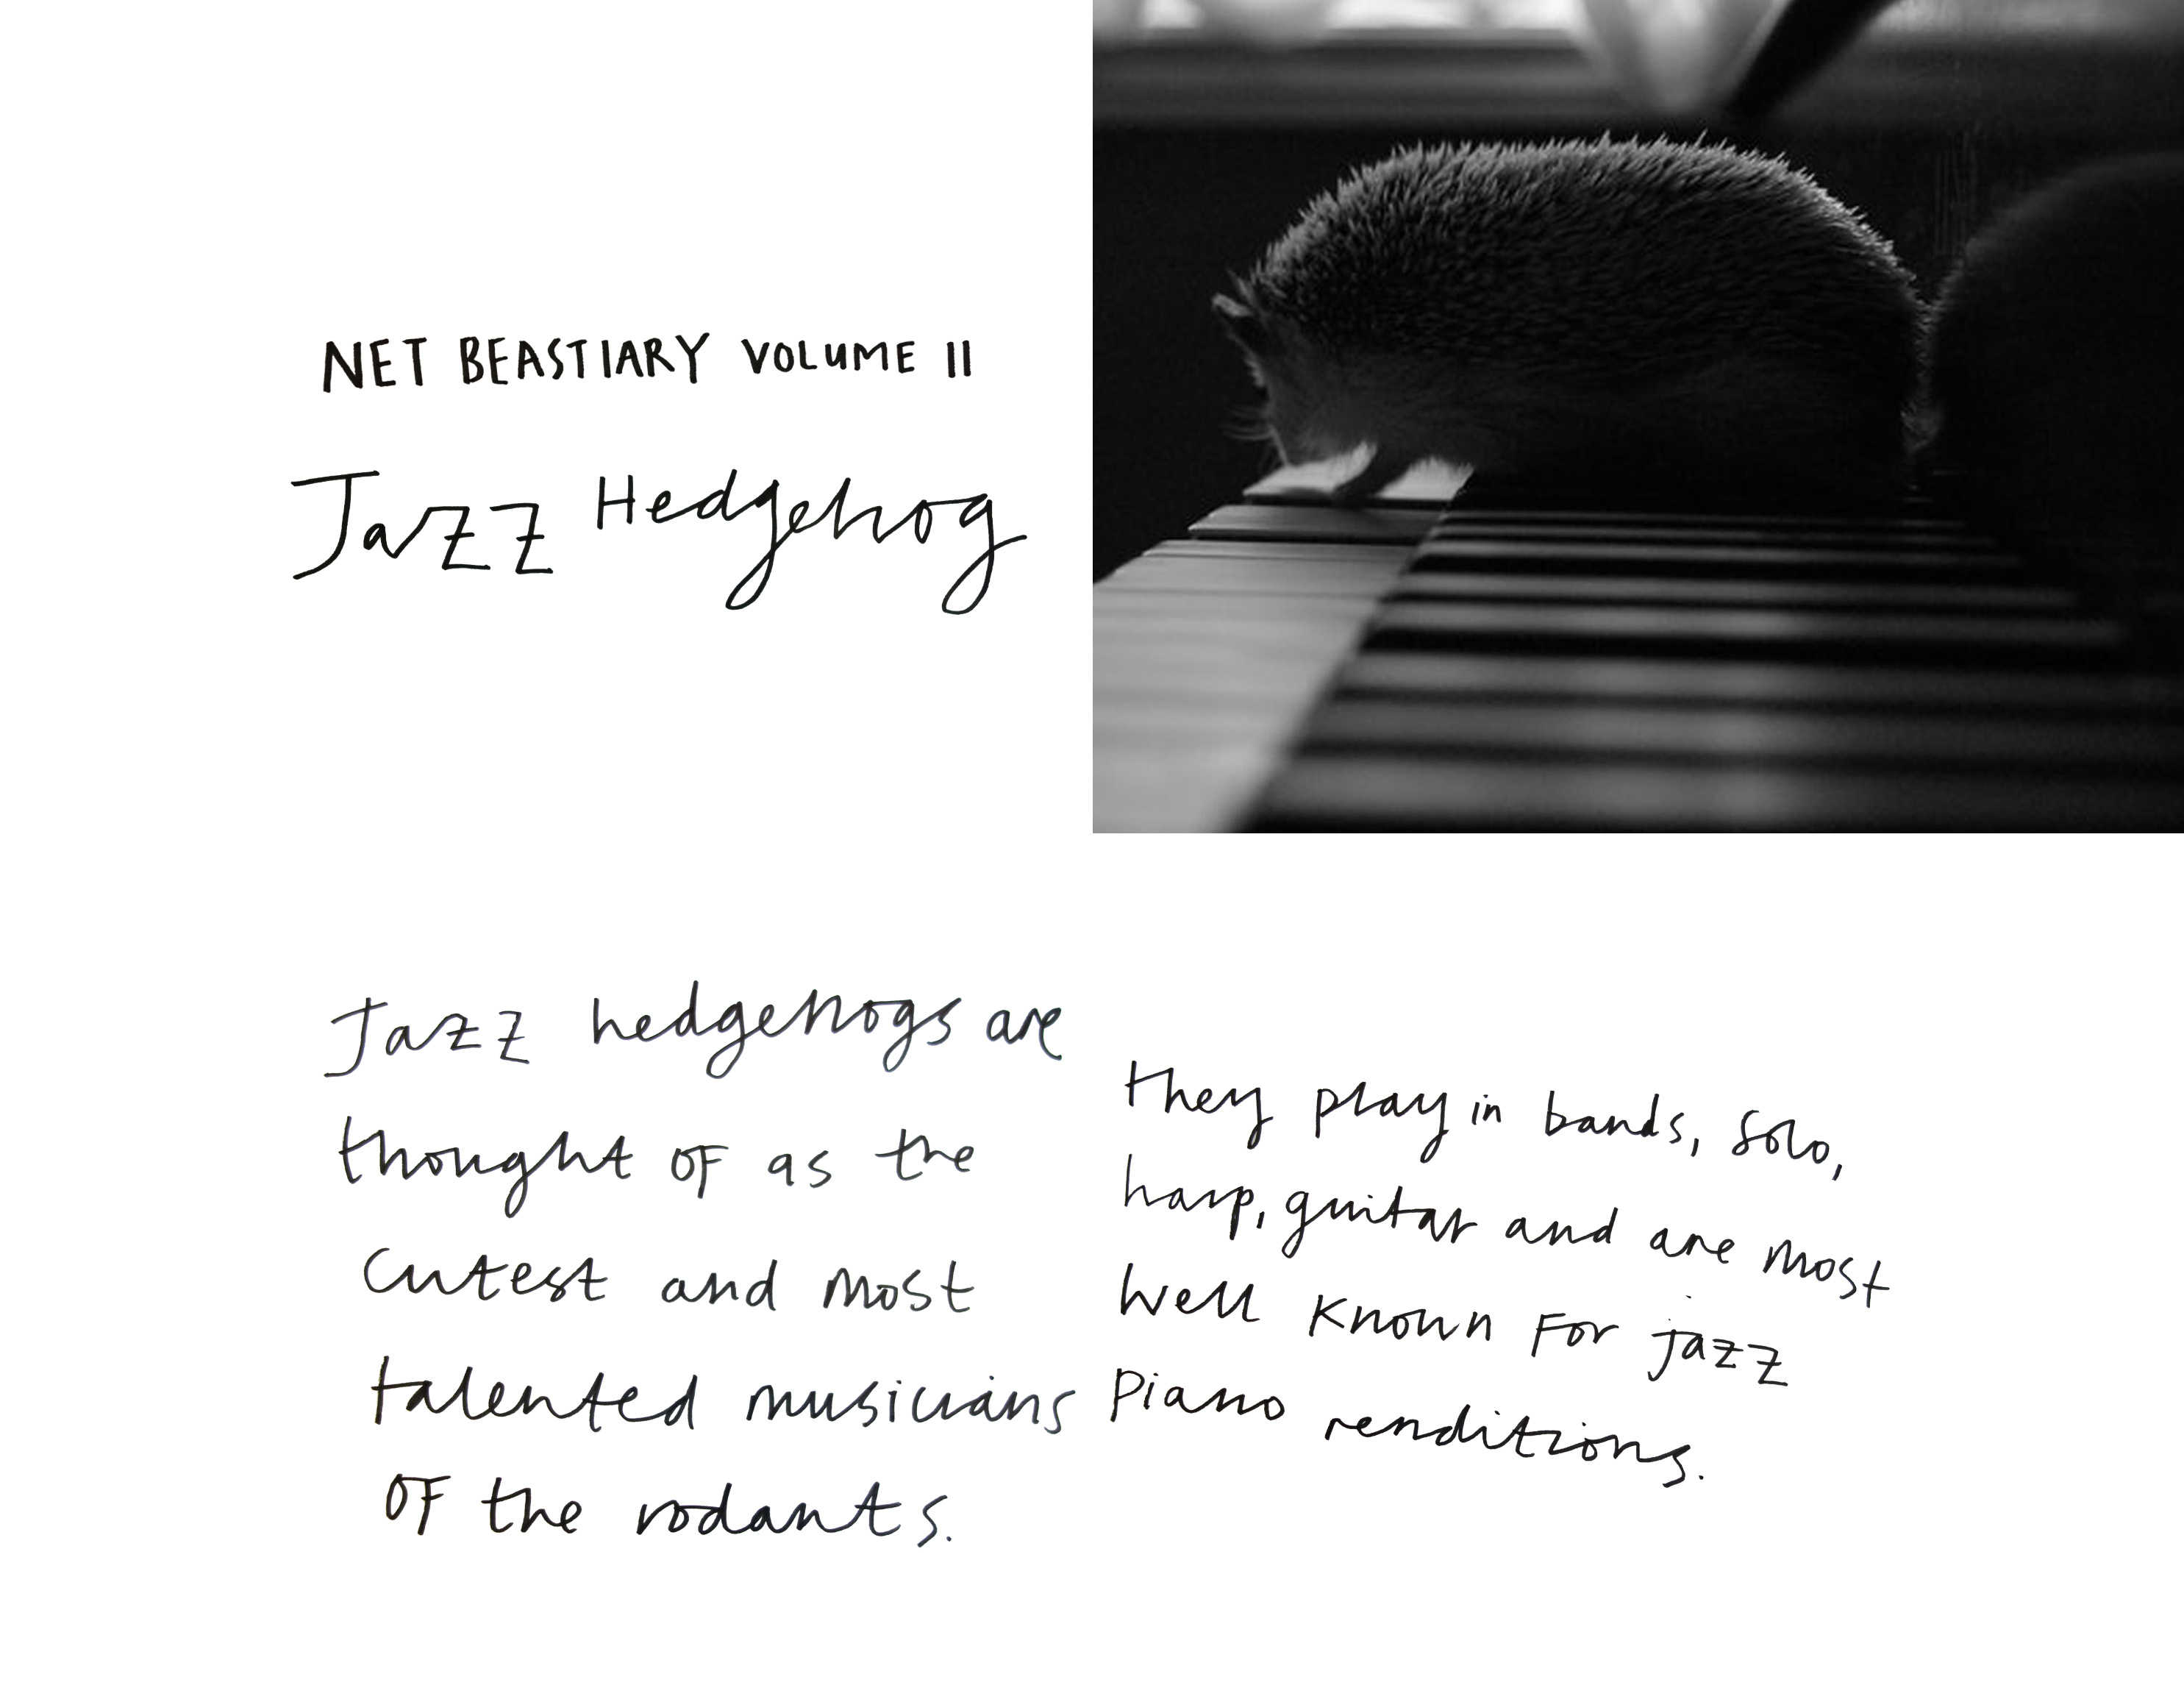 NET BEASTIARY VOLUME II
Jazz Hedgehog
Jazz hedgehogs are
thought of as the
cutest and most
talented musicians
of the rodants.
they play in bands, solo,
harp, guitar and are most
well known for jazz
piano renditions.